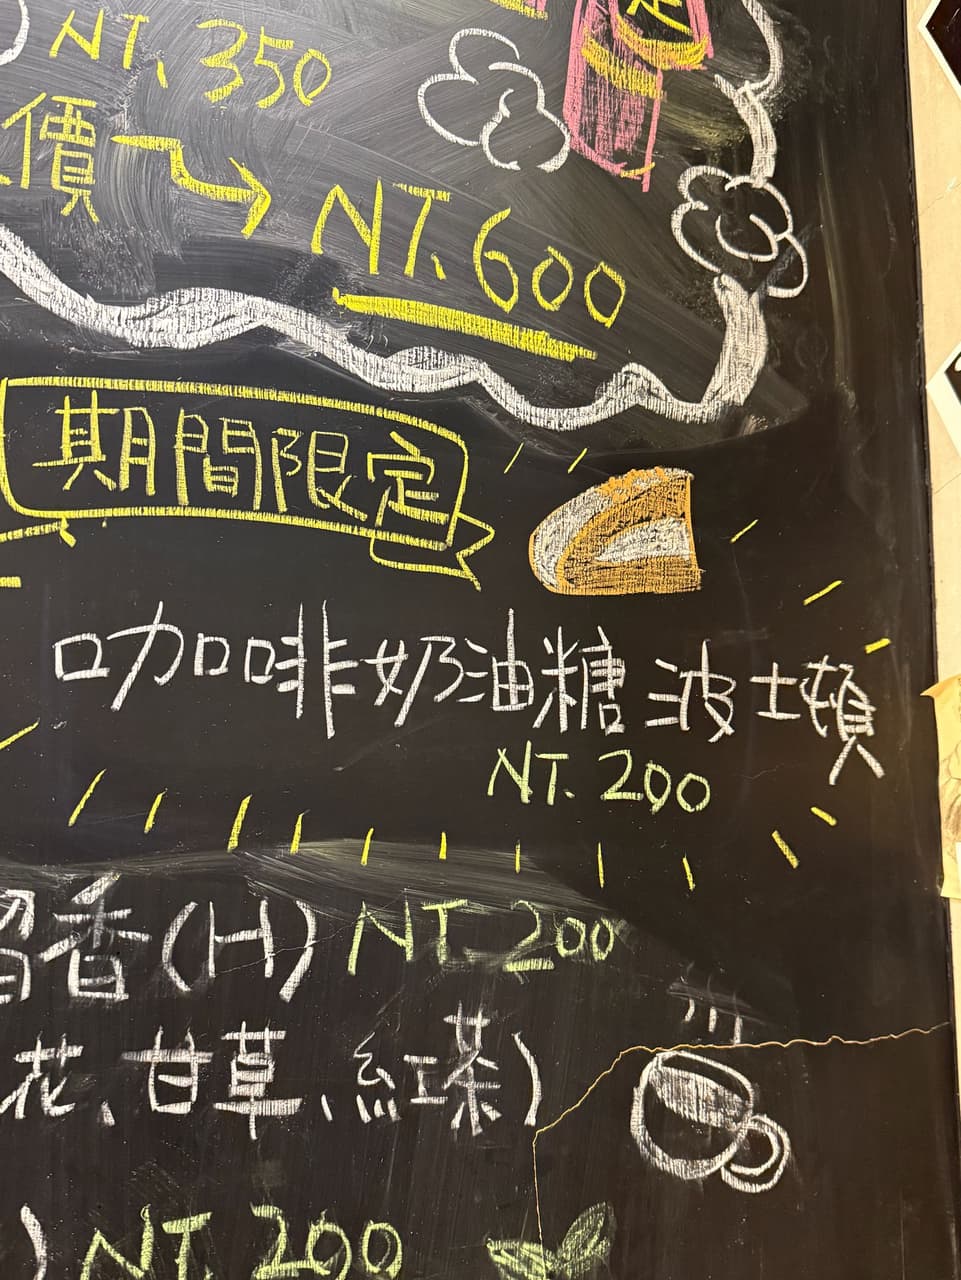 ) NT. 350
價 NT. 600
期間限定
咖啡奶油糖 波士頓
NT. 200
香(H) NT. 200
花、甘草、紅茶)
) NT. 200